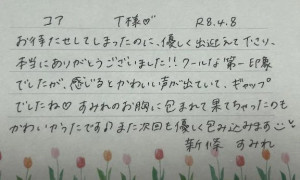 コア T様♡ R8.4.8
お待たせしてしまったのに、優しく出迎えて下さり、
本当にありがとうございます!! クールな第一印象
でしたが、感じるとかわいい声が出ていて、ギャップ
でしたね♡ すみれのお胸に包まれて果てちゃったのも
かわいかったです♪また次回も優しく包み込みます
新條 すみれ